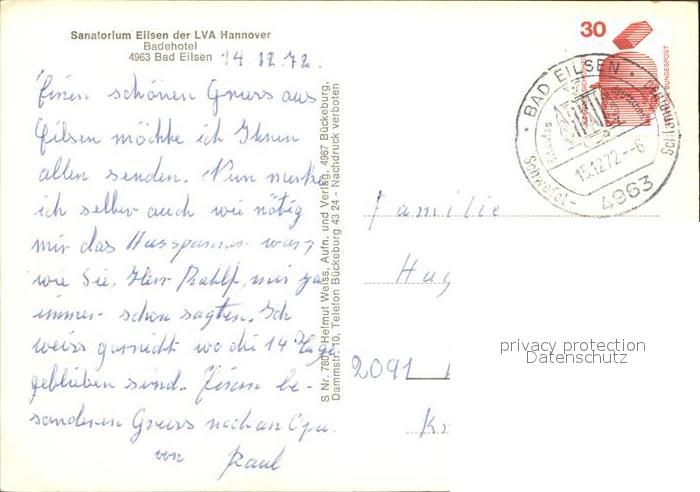 Sanatorium Eilsen der LVA Hannover
Badehotel
4963 Bad Eilsen
14.12.72.
Einen schönen Gruss aus
Eilsen möchte ich Ihnen
allen senden. Nun merke
ich selber auch wie nötig
mir das Ausspannen war,
wie Sie, Herr mir ja
immer schon sagten. Ich
weiss garnicht wo die 14 Tage
geblieben sind. Einen be-
sonderen Gruss noch an Opa.
von Paul
S Nr. 780 Helmut Weiss, Aufn. und Verlag, 4967 Bückeburg,
Dammstr. 10, Telefon Bückeburg 43 24 - Nachdruck verboten
30
DEUTSCHE BUNDESPOST
BAD EILSEN
Schwefel-
15.12.72--6
4963
Familie
Hug
2091
Kr
privacy protection
Datenschutz